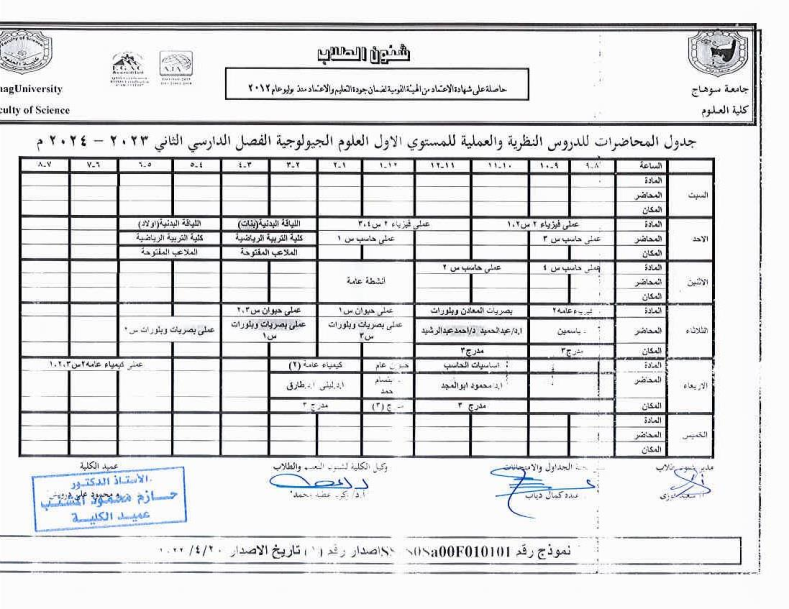 شئون الطلاب
حاصلة على شهادة الاعتماد من الهيئة القومية لضمان جودة التعليم والاعتماد منذ يوليو عام ٢٠١٢
جامعة سوهاج
كلية العلوم
University
culty of Science
جدول المحاضرات للدروس النظرية والعملية للمستوي الاول العلوم الجيولوجية الفصل الدارسي الثاني ٢٠٢٣ – ٢٠٢٤ م
الساعة ٩-٨ ١٠-٩ ١١-١٠ ١٢-١١ ١-١٢ ٢-١ ٣-٢ ٤-٣ ٥-٤ ٦-٥ ٧-٦ ٨-٧
السبت
المادة
المحاضر
المكان
الاحد
المادة عملى فيزياء ٢ س١،٢ عملى فيزياء ٢ س٣،٤ اللياقة البدنية(بنات) اللياقة البدنية(اولاد)
المحاضر عملى حاسب س ٣ عملى حاسب س ١ كلية التربية الرياضية كلية التربية الرياضية
المكان الملاعب المفتوحة الملاعب المفتوحة
الاثنين
المادة عملى حاسب س ٤ عملى حاسب س ٢
المحاضر أنشطة عامة
المكان
الثلاثاء
المادة عامه٢ بصريات المعادن وبلورات عملى حيوان س١ عملى حيوان س٢،٣
المحاضر ياسمين ا.د/عبدالحميد د/احمدعبدالرشيد عملى بصريات وبلورات س٣ عملى بصريات وبلورات س١ عملى بصريات وبلورات س٢
المكان مدرج٣ مدرج٣
الاربعاء
المادة اساسيات الحاسب عام كيمياء عامة (٢) عملى كيمياء عامه٢س١،٢،٣
المحاضر ا.د محمود ابوالمجد ا.د.ليلى ا.د.طارق
المكان مدرج ٣ (٣) مدرج ٣
الخميس
المادة
المحاضر
المكان
الجداول والامتحانات
عبده كمال دياب
وكيل الكلية لشئون التعليم والطلاب
عميد الكلية
الأستاذ الدكتور
حازم محمود
عميد الكلية
نموذج رقم 08a00F010101 اصدار رقم (١) تاريخ الاصدار ٢٠/٤/